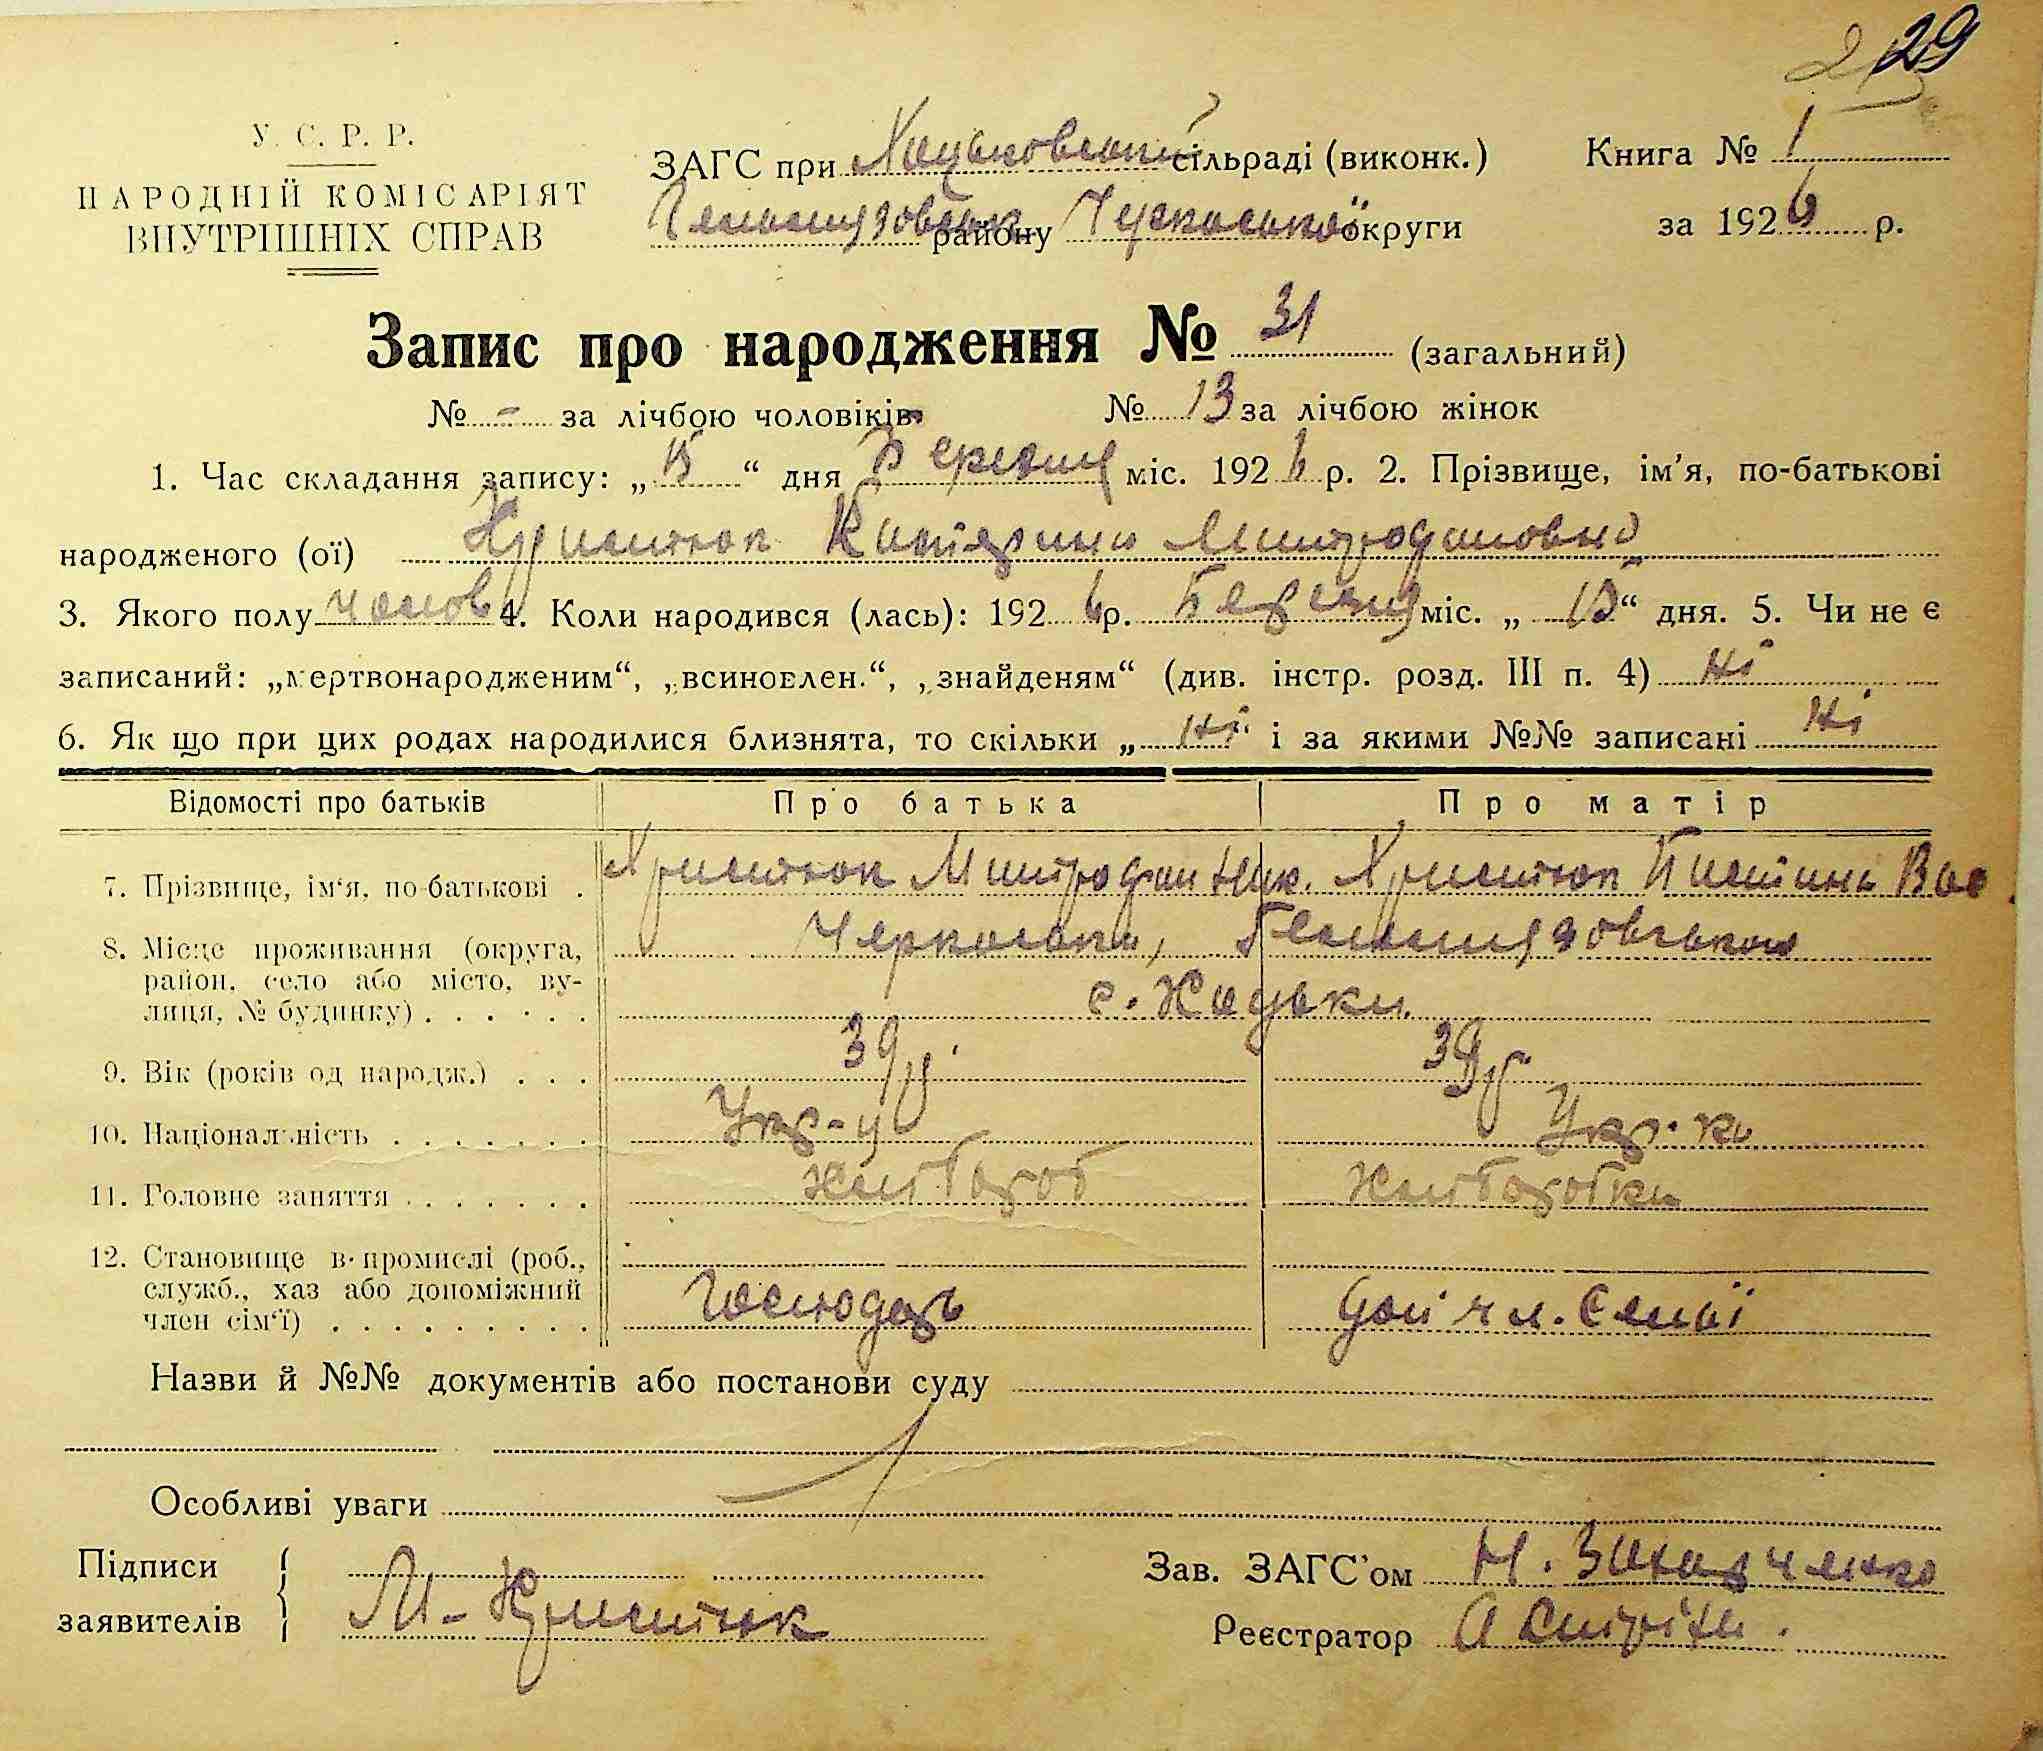 29
У. С. Р. Р.
НАРОДНІЙ КОМІСАРІЯТ
ВНУТРІШНІХ СПРАВ
ЗАГС при Хацьковський сільраді (виконк.)
району Черкаської округи
Книга № 1
за 1926 р.
Запис про народження № 31 (загальний)
№ - за лічбою чоловіків № 13 за лічбою жінок
1. Час складання запису: „15“ дня Березня міс. 1926 р. 2. Прізвище, ім'я, по-батькові
народженого (ої) Христюк Катярина Митродановна
3. Якого полу 4. Коли народився (лась): 1926 р. Березня міс. „15“ дня. 5. Чи не є
записаний: „мертвонародженим“, „всиновлен.“, „знайденям“ (див. інстр. розд. III п. 4) Ні
6. Як що при цих родах народилися близнята, то скільки „ Ні і за якими №№ записані Ні
Відомості про батьків Про батька Про матір
7. Прізвище, ім'я, по-батькові . Христюк Митродан Ник. Христюк Вас
8. Місце проживання (округа, район, село або місто, вулиця, № будинку) . . . . . . Черкаська,
с. Хацьки.
9. Вік (років од народж.) . . . 39 р. 39 р
10. Національність . . . . . . . Укр-ц Укр.-ка
11. Головне заняття . . . . . . . хлібороб хліборобка
12. Становище в промислі (роб., служб., хаз або допоміжний член сім'ї) . . . . . . . . . Господарь доп чл. Семьї
Назви й №№ документів або постанови суду
Особливі уваги
Підписи
заявителів
М-Христюк
Зав. ЗАГС'ом Н. Захарченко
Реєстратор